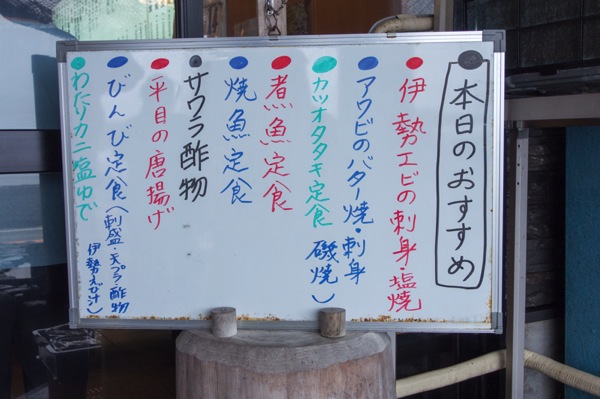 本日のおすすめ
伊勢エビの刺身・塩焼
アワビのバター焼・刺身
磯焼)
カツオタタキ定食
煮魚定食
焼魚定食
サワラ酢物
平目の唐揚げ
びんび定食(刺盛・天プラ・酢物
伊勢えび汁)
わたりカニ塩ゆで